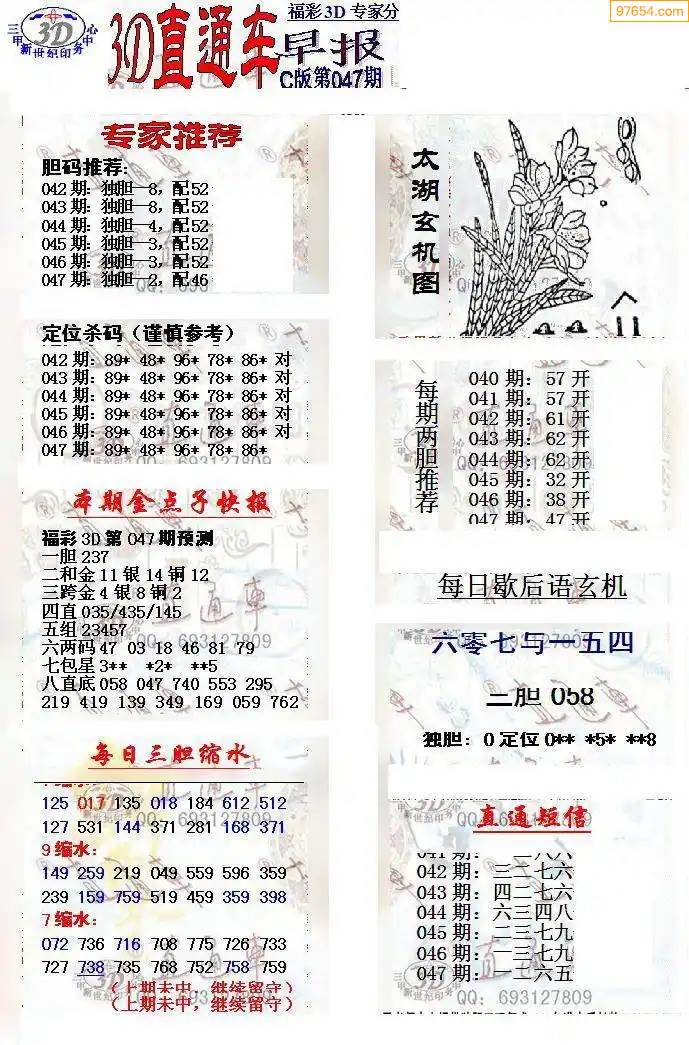 97654.com
福彩3D 专家分
三甲新世纪印务中心
3D
3D直通车早报
C版第047期
专家推荐
胆码推荐:
042期: 独胆—8, 配52
043期: 独胆—8, 配52
044期: 独胆—4, 配52
045期: 独胆—3, 配52
046期: 独胆—3, 配52
047期: 独胆—2, 配46
定位杀码（谨慎参考）
042期: 89* 48* 96* 78* 86* 对
043期: 89* 48* 96* 78* 86* 对
044期: 89* 48* 96* 78* 86* 对
045期: 89* 48* 96* 78* 86* 对
046期: 89* 48* 96* 78* 86* 对
047期: 89* 48* 96* 78* 86*
QQ: 693127809
本期金点子快报
福彩3D第047期预测
一胆237
二和金11银14铜12
三跨金4银8铜2
四直035/435/145
五组23457
六两码47 03 18 46 81 79
七包星3** *2* **5
八直底058 047 740 553 295
219 419 139 349 169 059 762
QQ: 693127809
每日三胆缩水
125 017 135 018 184 612 512
127 531 144 371 281 168 371
9缩水:
149 259 219 049 559 596 359
239 159 759 519 459 359 398
7缩水:
072 736 716 708 775 726 733
727 738 735 768 752 758 759
（上期未中，继续留守）
（上期未中，继续留守）
太湖玄机图
每期两胆推荐
040期: 57开
041期: 57开
042期: 61开
043期: 62开
044期: 62开
045期: 32开
046期: 38开
047期: 47开
每日歇后语玄机
六零七与一五四
三胆 058
独胆: 0 定位0** *5* **8
直通短信
041期: 一二八六
042期: 三二七六
043期: 四二七六
044期: 六三四八
045期: 二三七九
046期: 一三七九
047期: 一二六五
QQ: 693127809